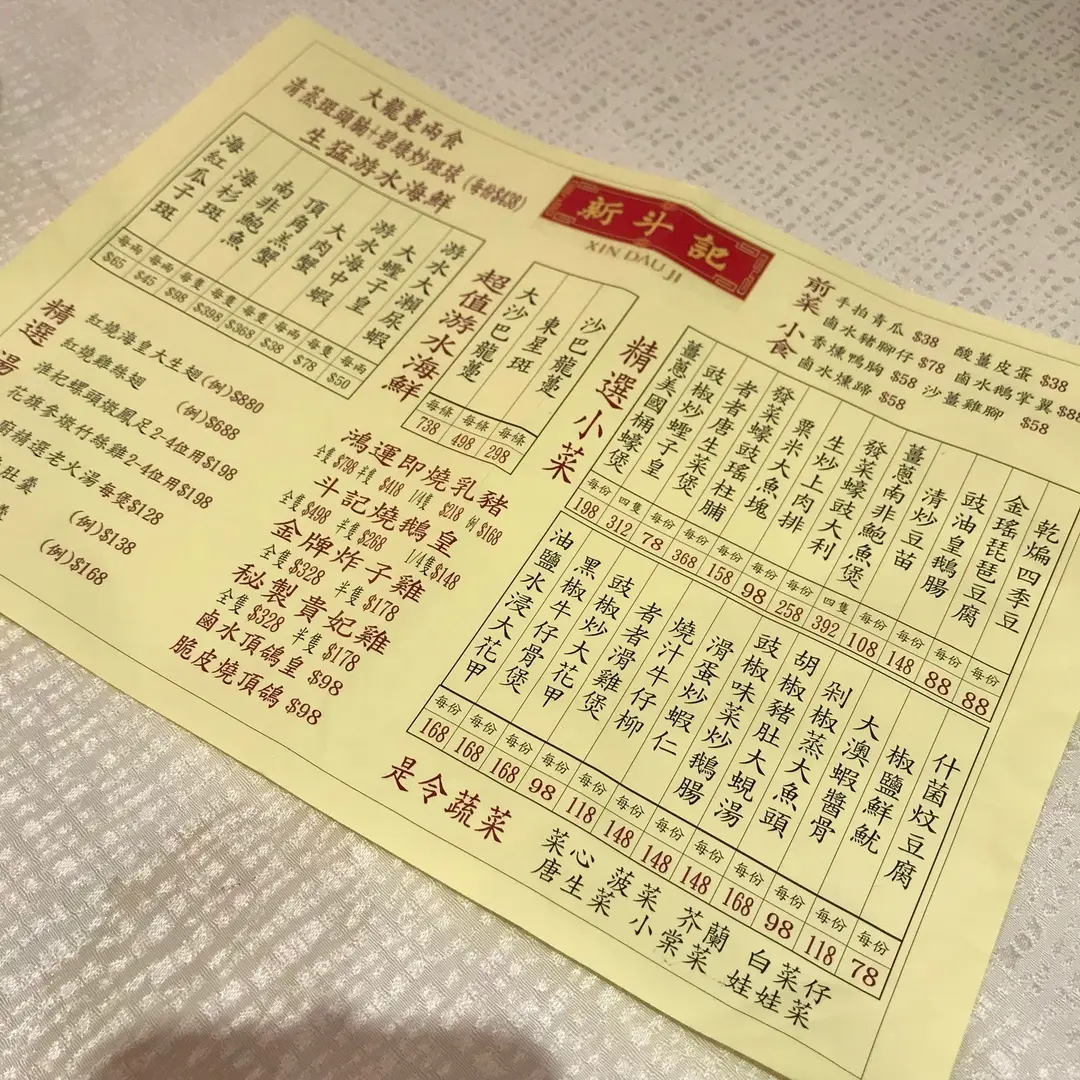 大龍躉兩食
清蒸斑頭腩+碧綠炒斑球 (每份$438)
生猛游水海鮮
游水大瀨尿蝦 每兩 $50
大蟶子皇 每隻 $78
游水海中蝦 每兩 $38
大肉蟹 每隻 $368
頂角羔蟹 每隻 $398
南非鮑魚 每隻 $98
海杉斑 每兩 $45
海紅瓜子斑 每兩 $65
新斗記
XIN DAU JI
超值游水海鮮
沙巴龍躉 每條 298
東星斑 每條 498
大沙巴龍躉 每條 738
前菜小食
手拍青瓜 $38 酸薑皮蛋 $38
鹵水豬腳仔 $78 鹵水鵝掌翼 $88
香燻鴨胸 $58 沙薑雞腳 $58
鹵水燻蹄 $58
精選小菜
乾煸四季豆 每份 88
金瑤琵琶豆腐 每份 88
豉油皇鵝腸 每份 148
清炒豆苗 每份 108
薑蔥南非鮑魚煲 四隻 392
發菜蠔豉大利 每份 258
生炒上肉排 每份 98
粟米大魚塊 每份 158
發菜蠔豉瑤柱脯 每份 368
者者唐生菜煲 每份 78
豉椒炒蟶子皇 四隻 312
薑蔥美國桶蠔煲 每份 198
什菌炆豆腐 每份 78
椒鹽鮮魷 每份 118
大澳蝦醬骨 每份 98
剁椒蒸大魚頭 每份 168
胡椒豬肚大蜆湯 每份 148
豉椒味菜炒鵝腸 每份 148
滑蛋炒蝦仁 每份 148
燒汁牛仔柳 每份 118
者者滑雞煲 每份 98
豉椒炒大花甲 每份 168
黑椒牛仔骨煲 每份 168
油鹽水浸大花甲 每份 168
精選湯
紅燒海皇大生翅(例)$880
紅燒雞絲翅 (例)$688
淮杞螺頭燉鳳足2-4位用$198
花旗參燉竹絲雞2-4位用$198
廚精選老火湯每煲$128
肚羹 (例)$138
羹 (例)$168
鴻運即燒乳豬
全隻$798 半隻 $418 1/4隻 $218 例 $168
斗記燒鵝皇
全隻$498 半隻$268 1/4隻$148
金牌炸子雞
全隻 $328 半隻 $178
秘製貴妃雞
全隻 $328 半隻 $178
鹵水頂鴿皇 $98
脆皮燒頂鴿 $98
是令蔬菜
菜心 菠菜 芥蘭 白菜仔
唐生菜 小棠菜 娃娃菜